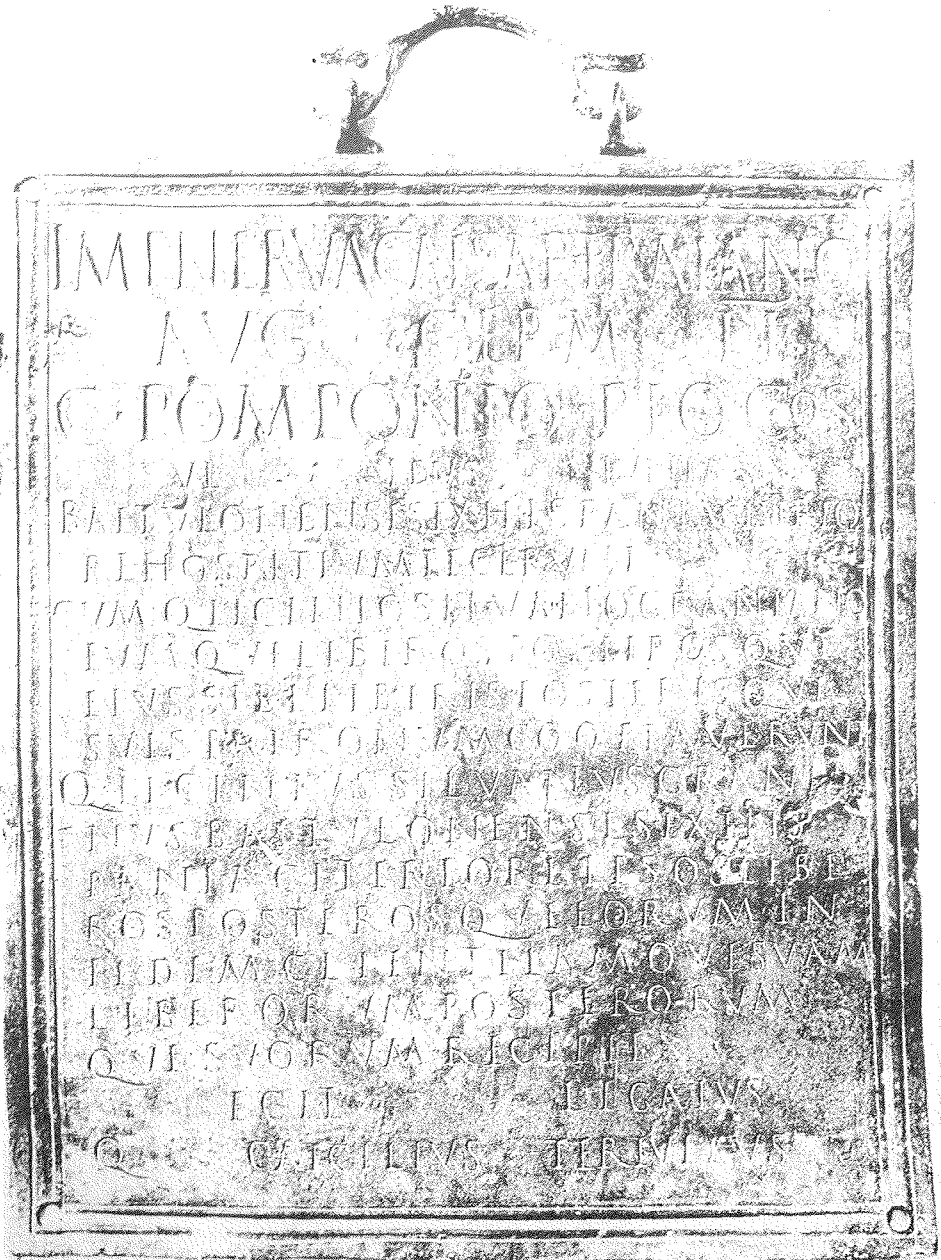 IMP NERVA CAESARE TRAIANO
AVG GER P M II
C POMPONIO PIO COS
VI IDVS IVNIAS
BAETVLONENSES EX HISPANIA CITERIO
RE HOSPITIVM FECERVNT
CVM Q LICINIO SILVANO GRANIANO
EVMQVE LIBEROS POSTEROSQVE
EIVS SIBI LIBERIS POSTERISQVE
SVIS PATRONVM COOPTAVERVNT
Q LICINIVS SILVANVS GRANIA
NVS BAETVLONENSES EX HIS
PANIA CITERIORE IPSOS LIBE
ROS POSTEROSQVE EORVM IN
FIDEM CLIENTELAMQVE SVAM
LIBERORVM POSTERORVM
QVE SVORVM RECEPIT
EGIT LEGATVS
Q CAECILIVS TERTVLLVS